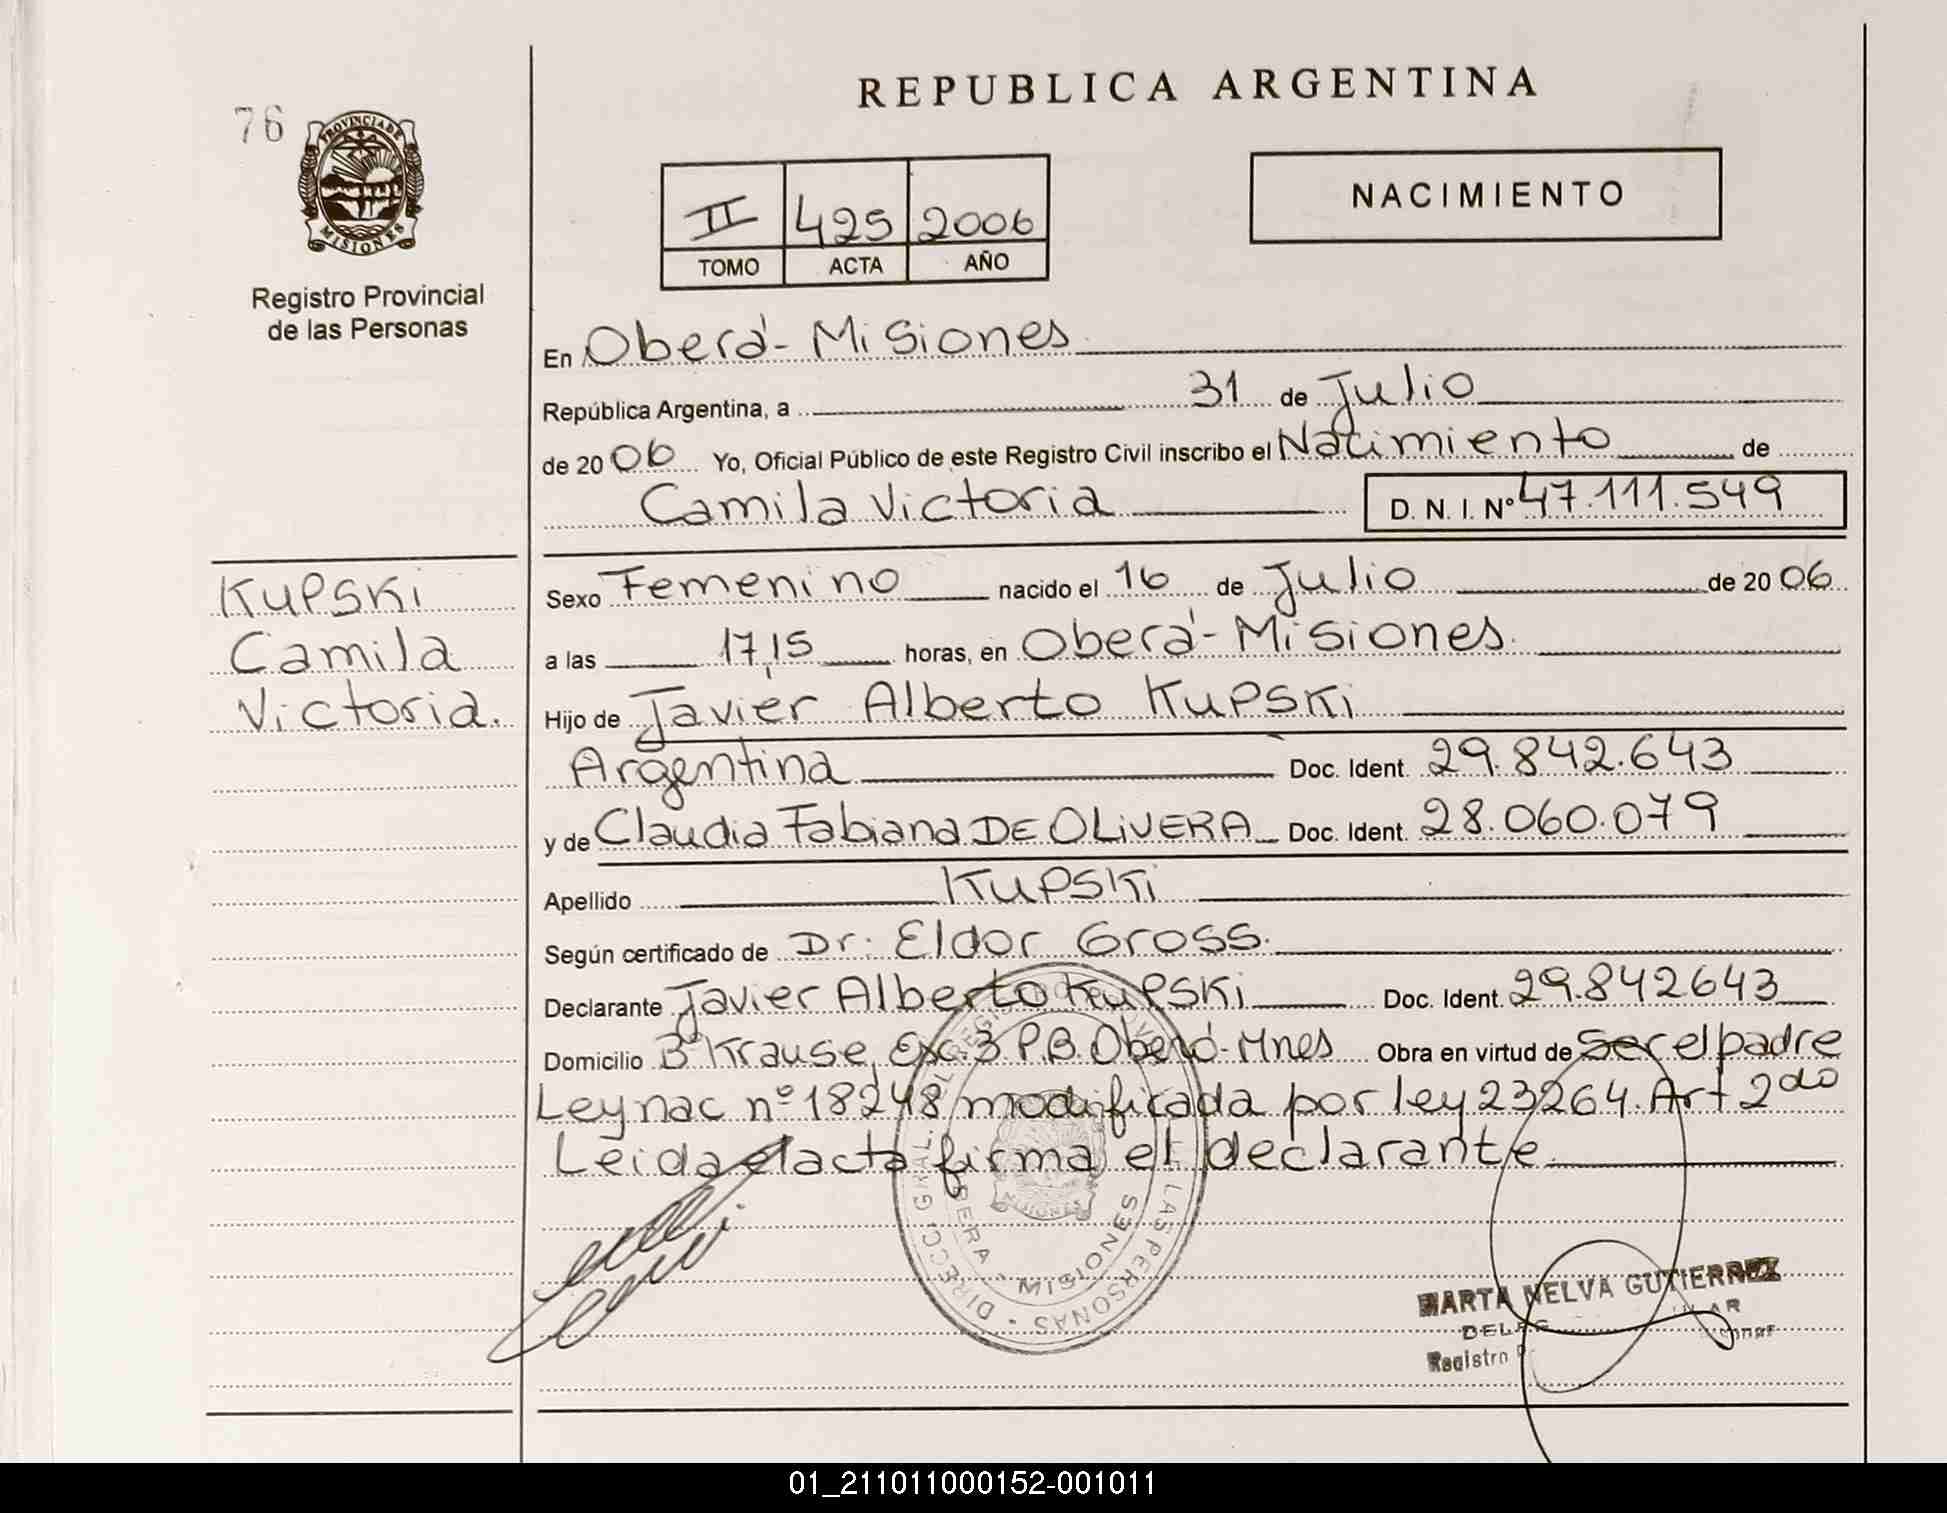 REPUBLICA ARGENTINA
76
PROVINCIA DE
MISIONES
Registro Provincial
de las Personas
II 425 2006
TOMO ACTA AÑO
NACIMIENTO
En Oberá - Misiones
República Argentina, a 31 de Julio
de 20 06 Yo, Oficial Público de este Registro Civil inscribo el Nacimiento de
Camila Victoria D. N. I. Nº 47.111.549
Kupski
Camila
Victoria.
Sexo Femenino nacido el 16 de Julio de 20 06
a las 17,15 horas, en Oberá - Misiones.
Hijo de Javier Alberto Kupski
Argentina Doc. Ident. 29.842.643
y de Claudia Fabiana DE OLIVERA Doc. Ident. 28.060.079
Apellido Kupski
Según certificado de Dr. Eldor Gross.
Declarante Javier Alberto Kupski Doc. Ident. 29.842643
Domicilio Bº Krause, Esc. 3 P.B. Oberá - Mnes Obra en virtud de Ser el padre
Ley nac nº 18248 modificada por ley 23264. Art 2do
Leida el acta firma el declarante
DIRECC. GRAL. DEL REGISTRO LAS PERSONAS
OBERA MISIONES
MARTA NELVA GUTIERREZ
Registro
01_211011000152-001011